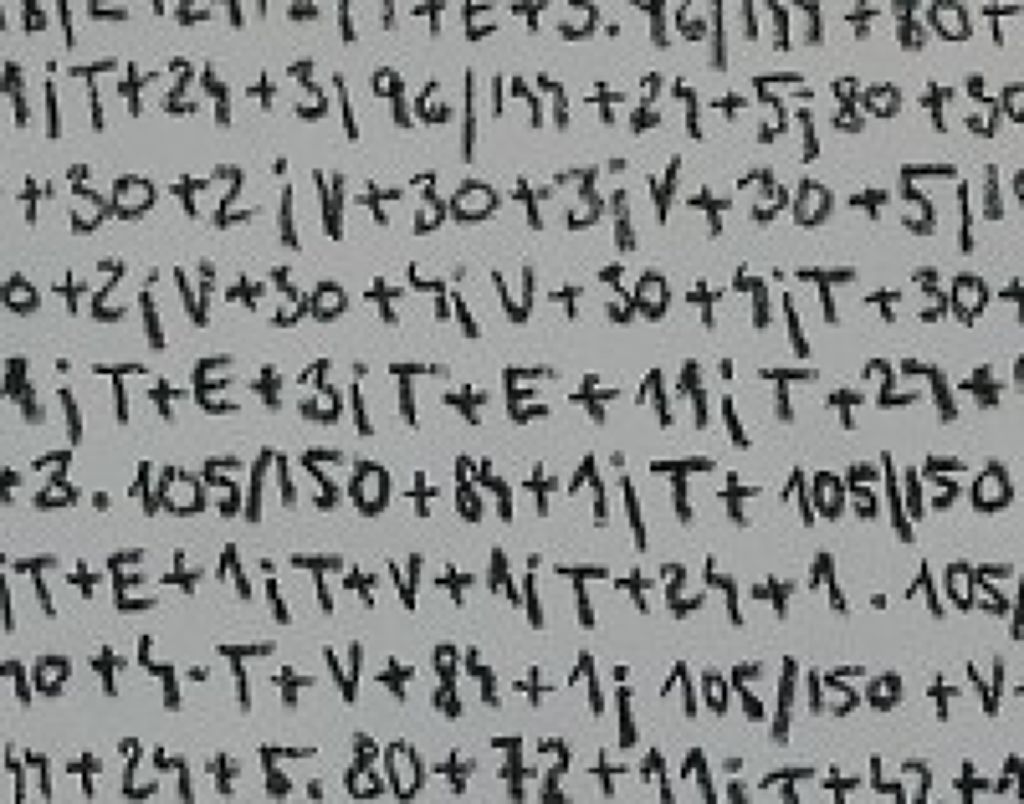 T+E+3.96/144+80+
1;T+24+3;96/144+24+5;80+30
+30+2;V+30+3;V+30+5;
0+2;V+30+4;V+30+4;T+30+
1;T+E+3;T+E+11;T+24+
+3.105/150+84+1;T+105/150
;T+E+1;T+V+1;T+24+1.105/
40+4.T+V+84+1;105/150+V
44+24+5.80+72+11;T+42+